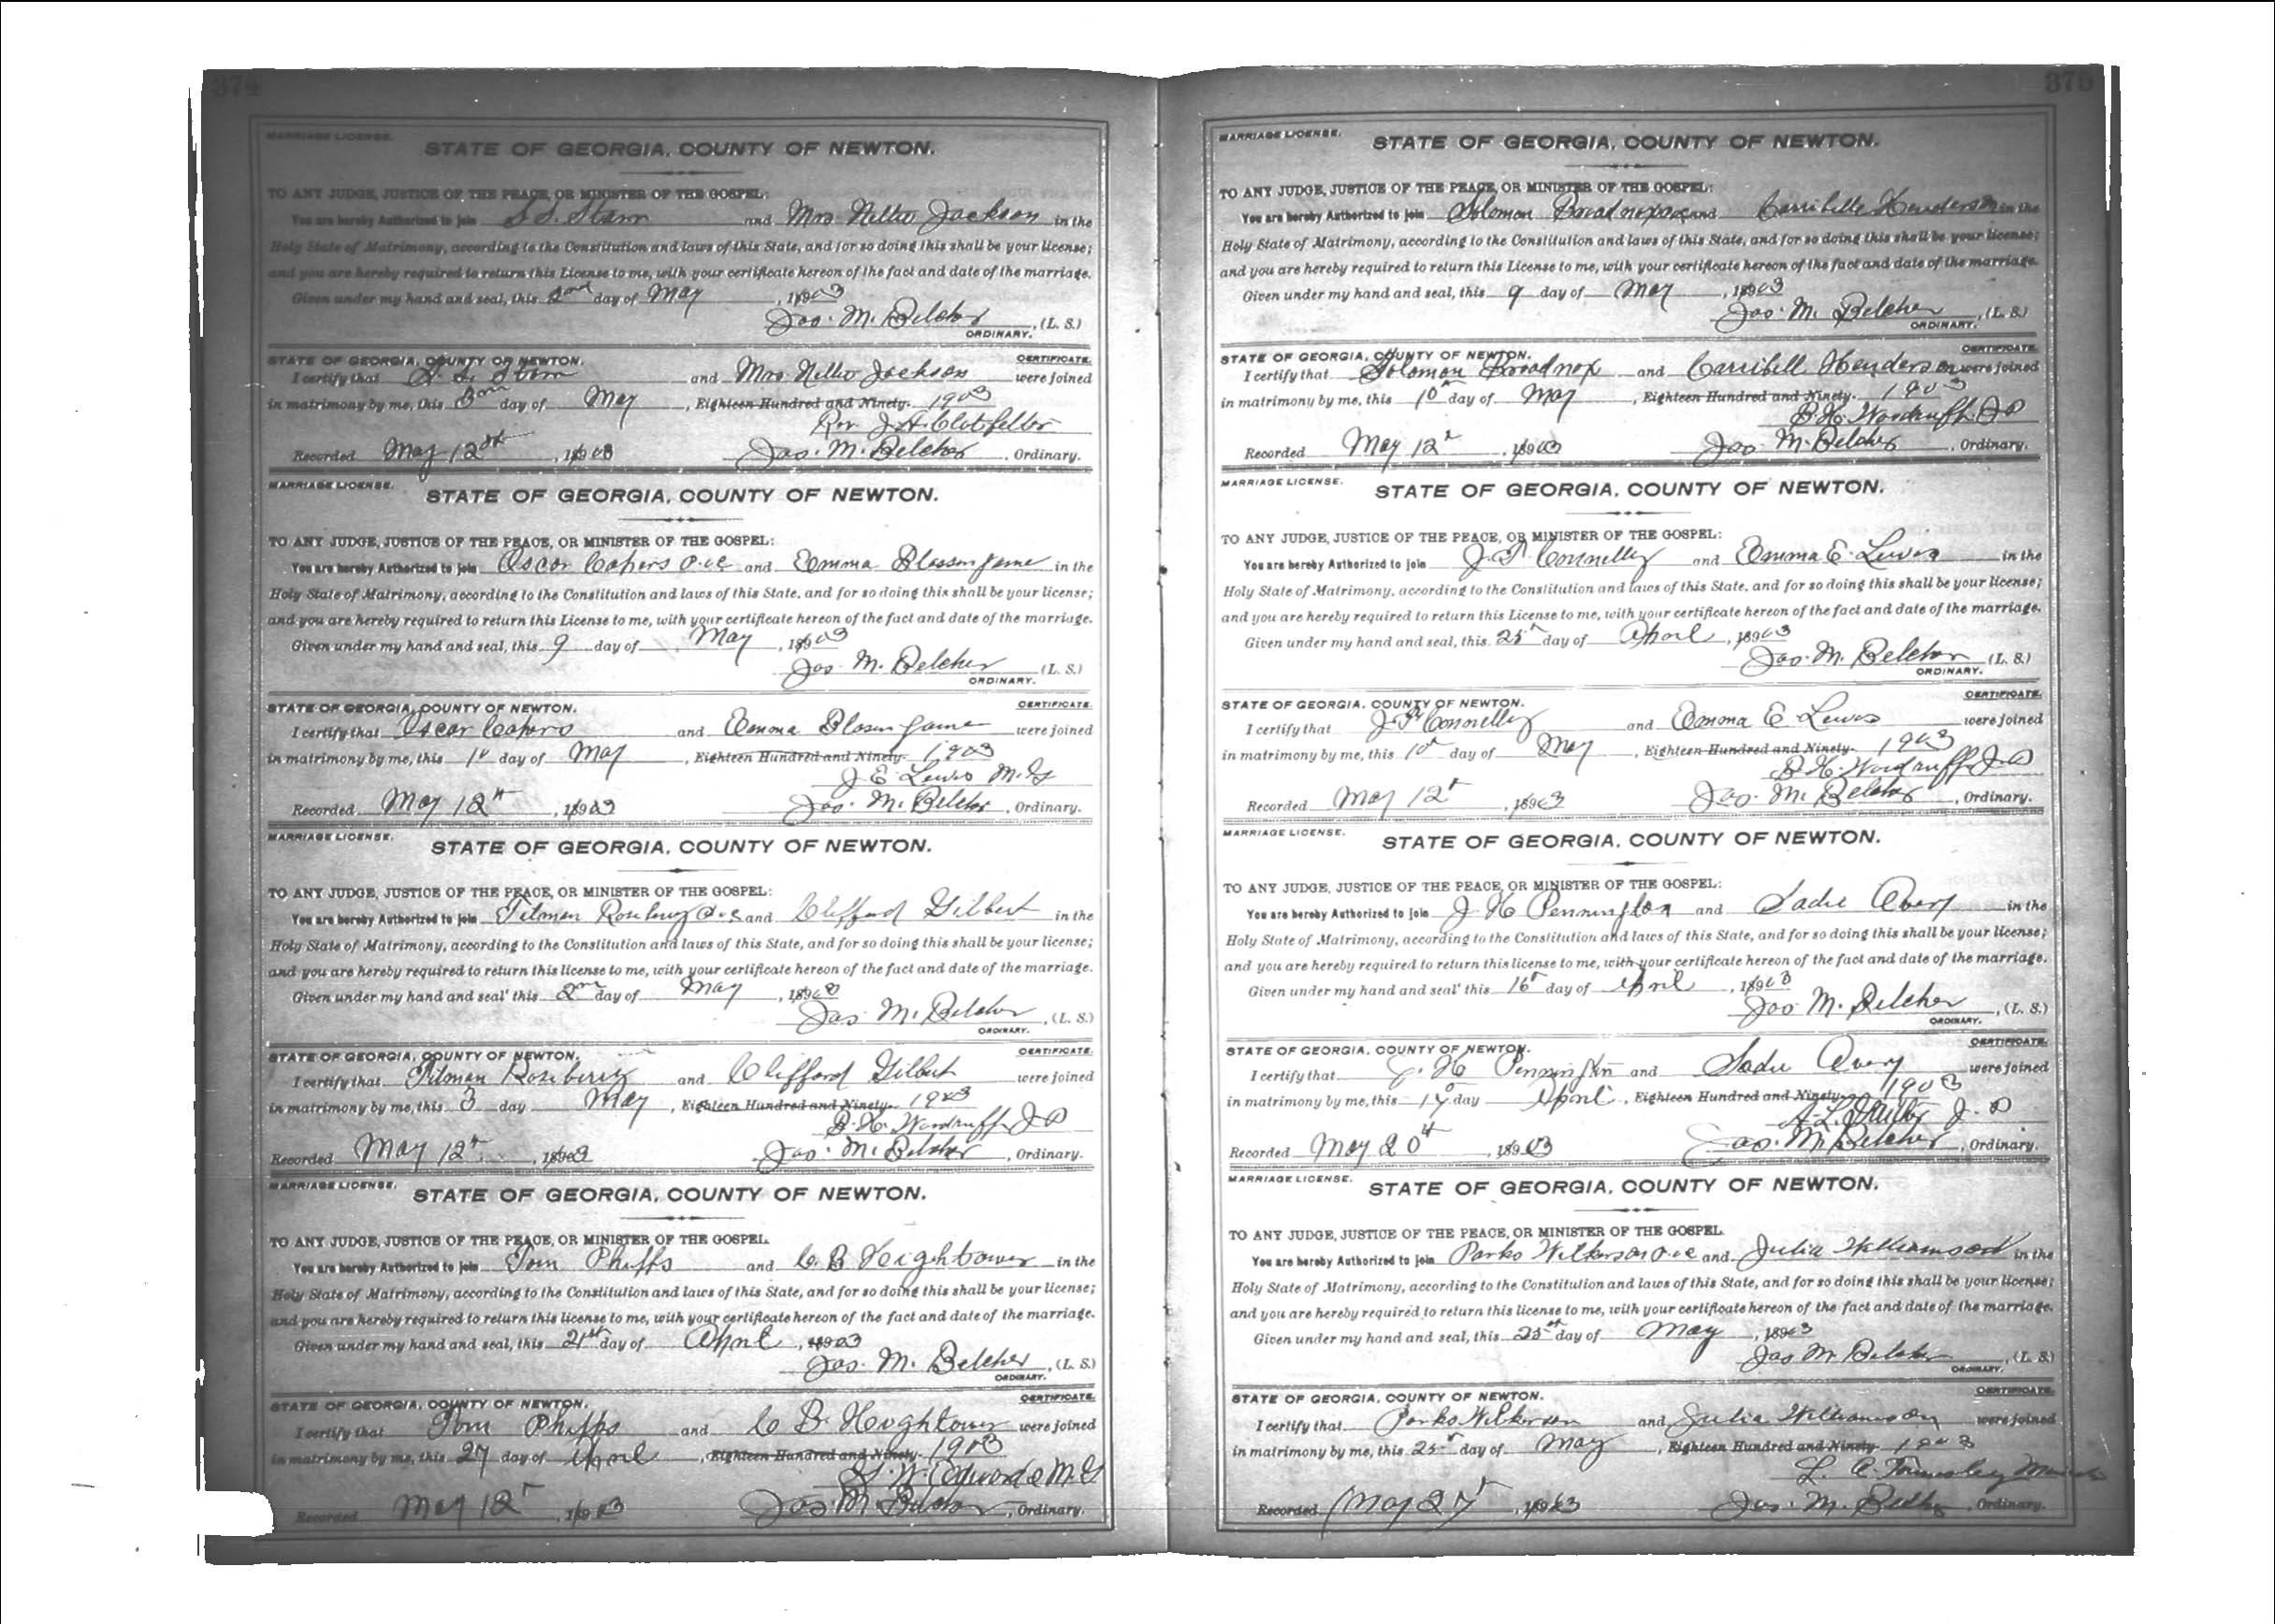 374
MARRIAGE LICENSE.
STATE OF GEORGIA, COUNTY OF NEWTON.
TO ANY JUDGE, JUSTICE OF THE PEACE, OR MINISTER OF THE GOSPEL:
You are hereby Authorized to join and Mrs Nettie Jackson in the
Holy State of Matrimony, according to the Constitution and laws of this State, and for so doing this shall be your license;
and you are hereby required to return this License to me, with your certificate hereon of the fact and date of the marriage.
Given under my hand and seal, this 2nd day of May, 1903
Jas. M. Belcher, (L. S.)
ORDINARY.
STATE OF GEORGIA, COUNTY OF NEWTON. CERTIFICATE.
I certify that and Mrs Nettie Jackson were joined
in matrimony by me, this 3 day of May, Eighteen Hundred and Ninety- 1903
Rev J. A.
Recorded May 12th, 1903 Jas. M. Belcher, Ordinary.
MARRIAGE LICENSE.
STATE OF GEORGIA, COUNTY OF NEWTON.
TO ANY JUDGE, JUSTICE OF THE PEACE, OR MINISTER OF THE GOSPEL:
You are hereby Authorized to join Oscar Capers o.c. and Emma Blassingame in the
Holy State of Matrimony, according to the Constitution and laws of this State, and for so doing this shall be your license;
and you are hereby required to return this License to me, with your certificate hereon of the fact and date of the marriage.
Given under my hand and seal, this 9 day of May, 1903
Jas. M. Belcher (L. S.)
ORDINARY.
STATE OF GEORGIA, COUNTY OF NEWTON. CERTIFICATE.
I certify that Oscar Capers and Emma Blasingame were joined
in matrimony by me, this 10 day of May, Eighteen Hundred and Ninety- 1903
J. E. Lewis M.G
Recorded May 12th, 1903 Jas. M. Belcher, Ordinary.
MARRIAGE LICENSE.
STATE OF GEORGIA, COUNTY OF NEWTON.
TO ANY JUDGE, JUSTICE OF THE PEACE, OR MINISTER OF THE GOSPEL:
You are hereby Authorized to join Tilman Roseberry o.c and Clifford Gilbert in the
Holy State of Matrimony, according to the Constitution and laws of this State, and for so doing this shall be your license;
and you are hereby required to return this license to me, with your certificate hereon of the fact and date of the marriage.
Given under my hand and seal' this 2nd day of May, 1903
Jas M. Belcher, (L. S.)
ORDINARY.
STATE OF GEORGIA, COUNTY OF NEWTON. CERTIFICATE.
I certify that Tilman Roseberry and Clifford Gilbert were joined
in matrimony by me, this 3 day May, Eighteen Hundred and Ninety- 1903
B. H. Woodruff J P
Recorded May 12th, 1903 Jas. M. Belcher, Ordinary.
MARRIAGE LICENSE.
STATE OF GEORGIA, COUNTY OF NEWTON.
TO ANY JUDGE, JUSTICE OF THE PEACE, OR MINISTER OF THE GOSPEL.
You are hereby Authorized to join Tom Phipps and C. B Heightower in the
Holy State of Matrimony, according to the Constitution and laws of this State, and for so doing this shall be your license;
and you are hereby required to return this license to me, with your certificate hereon of the fact and date of the marriage.
Given under my hand and seal, this 21st day of April, 1903
Jas. M. Belcher, (L. S.)
ORDINARY.
STATE OF GEORGIA, COUNTY OF NEWTON. CERTIFICATE.
I certify that Tom Phipps and C B Hightower were joined
in matrimony by me, this 27 day of April, Eighteen Hundred and Ninety- 1903
W. Edwards M.G
Recorded May 12th, 1903 Jas. M. Belcher, Ordinary.
375
MARRIAGE LICENSE.
STATE OF GEORGIA, COUNTY OF NEWTON.
TO ANY JUDGE, JUSTICE OF THE PEACE, OR MINISTER OF THE GOSPEL:
You are hereby Authorized to join Solomon Broadnox and Carribelle Henderson in the
Holy State of Matrimony, according to the Constitution and laws of this State, and for so doing this shall be your license;
and you are hereby required to return this License to me, with your certificate hereon of the fact and date of the marriage.
Given under my hand and seal, this 9 day of May, 1903
Jas. M. Belcher, (L. S.)
ORDINARY.
STATE OF GEORGIA, COUNTY OF NEWTON. CERTIFICATE.
I certify that Solomon Broadnox and Carribell Henderson were joined
in matrimony by me, this 10th day of May, Eighteen Hundred and Ninety- 1903
B. H. Woodruff J P
Recorded May 12th, 1903 Jas M. Belcher, Ordinary.
MARRIAGE LICENSE.
STATE OF GEORGIA, COUNTY OF NEWTON.
TO ANY JUDGE, JUSTICE OF THE PEACE, OR MINISTER OF THE GOSPEL:
You are hereby Authorized to join J. P. Connelly and Emma E. Lewis in the
Holy State of Matrimony, according to the Constitution and laws of this State, and for so doing this shall be your license;
and you are hereby required to return this License to me, with your certificate hereon of the fact and date of the marriage.
Given under my hand and seal, this 25th day of April, 1903
Jas. M. Belcher (L. S.)
ORDINARY.
STATE OF GEORGIA, COUNTY OF NEWTON. CERTIFICATE.
I certify that J. P Connelly and Emma E Lewis were joined
in matrimony by me, this 10th day of May, Eighteen Hundred and Ninety- 1903
B. H. Woodruff J P
Recorded May 12th, 1903 Jas. M. Belcher, Ordinary.
MARRIAGE LICENSE.
STATE OF GEORGIA, COUNTY OF NEWTON.
TO ANY JUDGE, JUSTICE OF THE PEACE, OR MINISTER OF THE GOSPEL:
You are hereby Authorized to join J. H Pennington and Sadie Avery in the
Holy State of Matrimony, according to the Constitution and laws of this State, and for so doing this shall be your license;
and you are hereby required to return this license to me, with your certificate hereon of the fact and date of the marriage.
Given under my hand and seal' this 16th day of April, 1903
Jas M. Belcher, (L. S.)
ORDINARY.
STATE OF GEORGIA, COUNTY OF NEWTON. CERTIFICATE.
I certify that J. H Pennington and Sadie Avery were joined
in matrimony by me, this 17 day April, Eighteen Hundred and Ninety- 1903
A. L. J. P
Recorded May 20th, 1903 Jas. M. Belcher, Ordinary.
MARRIAGE LICENSE.
STATE OF GEORGIA, COUNTY OF NEWTON.
TO ANY JUDGE, JUSTICE OF THE PEACE, OR MINISTER OF THE GOSPEL.
You are hereby Authorized to join Parks Wilkerson o.c and Julia Williamson in the
Holy State of Matrimony, according to the Constitution and laws of this State, and for so doing this shall be your license;
and you are hereby required to return this license to me, with your certificate hereon of the fact and date of the marriage.
Given under my hand and seal, this 25th day of May, 1903
Jas M Belcher, (L. S.)
ORDINARY.
STATE OF GEORGIA, COUNTY OF NEWTON. CERTIFICATE.
I certify that Parks Wilkerson and Julia Williamson were joined
in matrimony by me, this 25th day of May, Eighteen Hundred and Ninety- 1903
L. C. Townsley
Recorded May 27, 1903 Jas. M. Belcher, Ordinary.